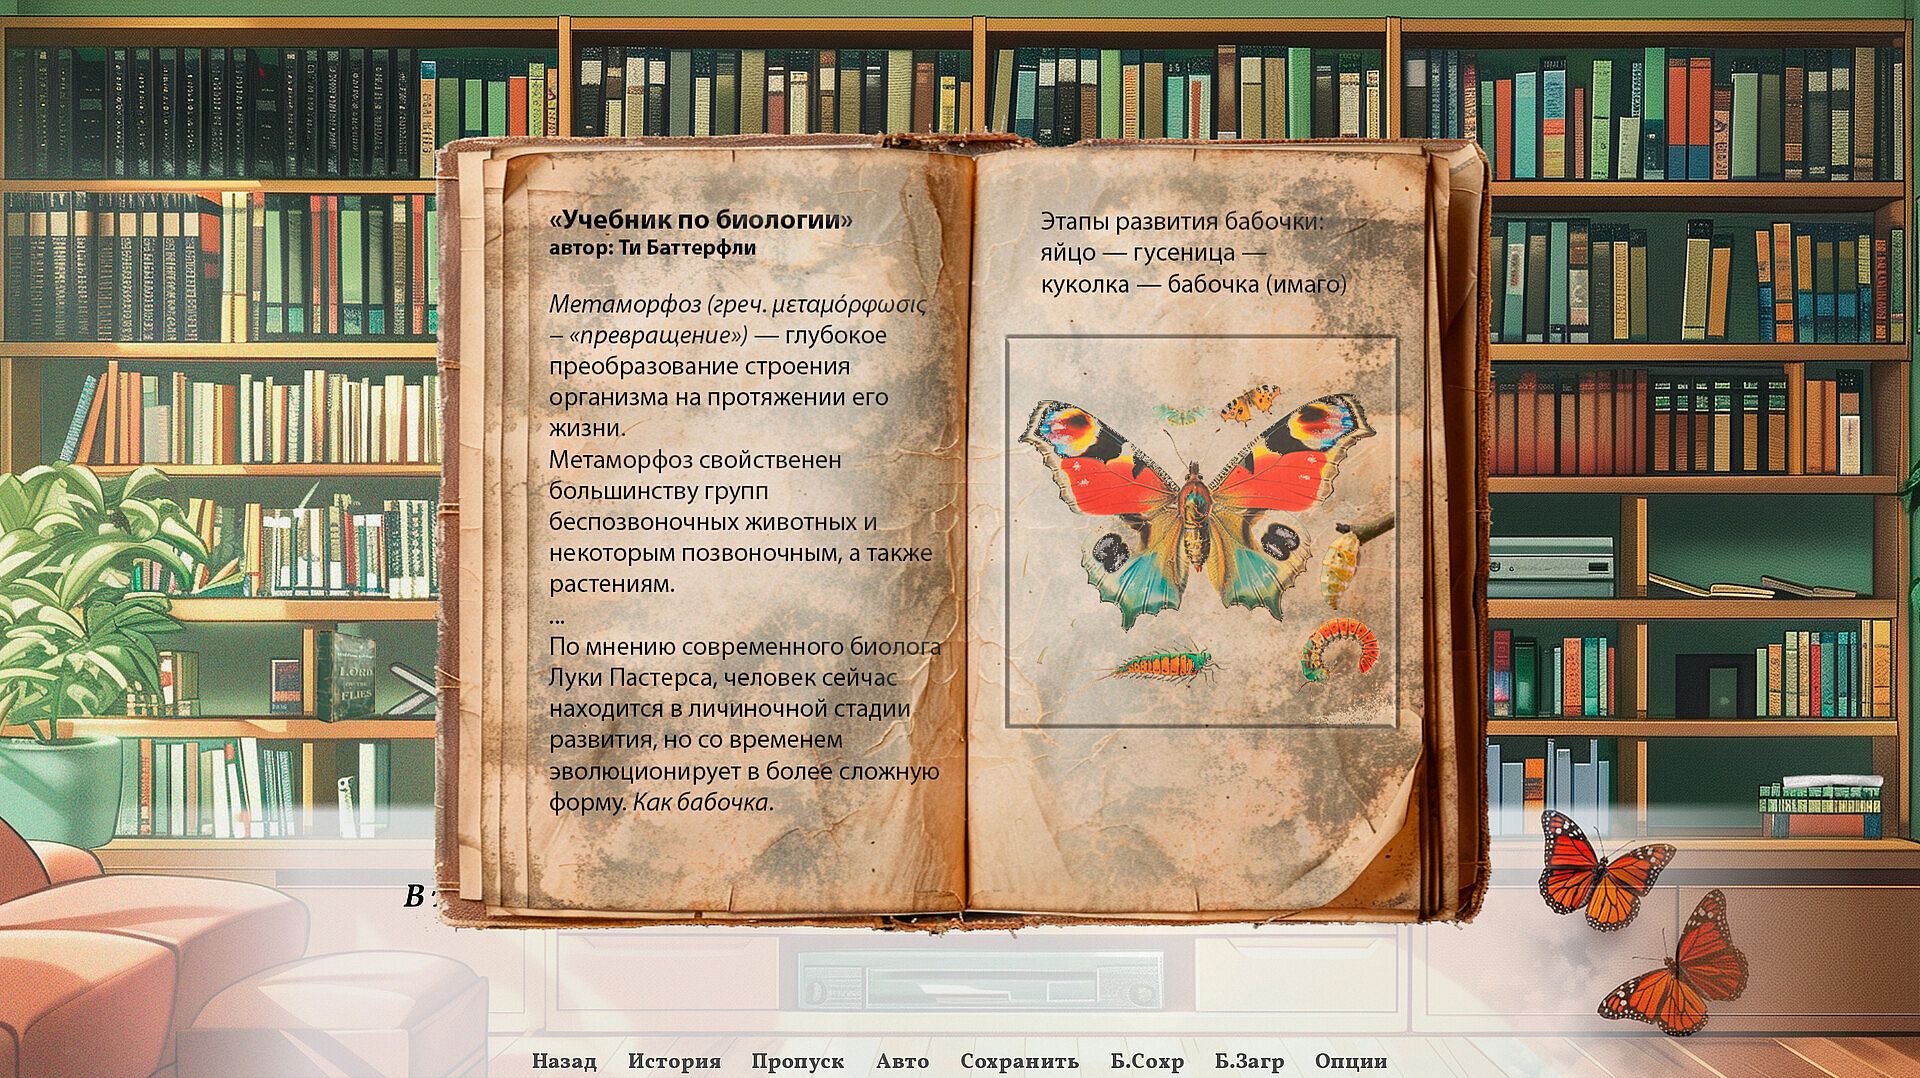 «Учебник по биологии»
автор: Ти Баттерфли
Метаморфоз (греч. μεταμόρφωσις
– «превращение») — глубокое
преобразование строения
организма на протяжении его
жизни.
Метаморфоз свойственен
большинству групп
беспозвоночных животных и
некоторым позвоночным, а также
растениям.
...
По мнению современного биолога
Луки Пастерса, человек сейчас
находится в личиночной стадии
развития, но со временем
эволюционирует в более сложную
форму. Как бабочка.
Этапы развития бабочки:
яйцо — гусеница —
куколка — бабочка (имаго)
LORD
OF THE
FLIES
В
Назад История Пропуск Авто Сохранить Б.Сохр Б.Загр Опции